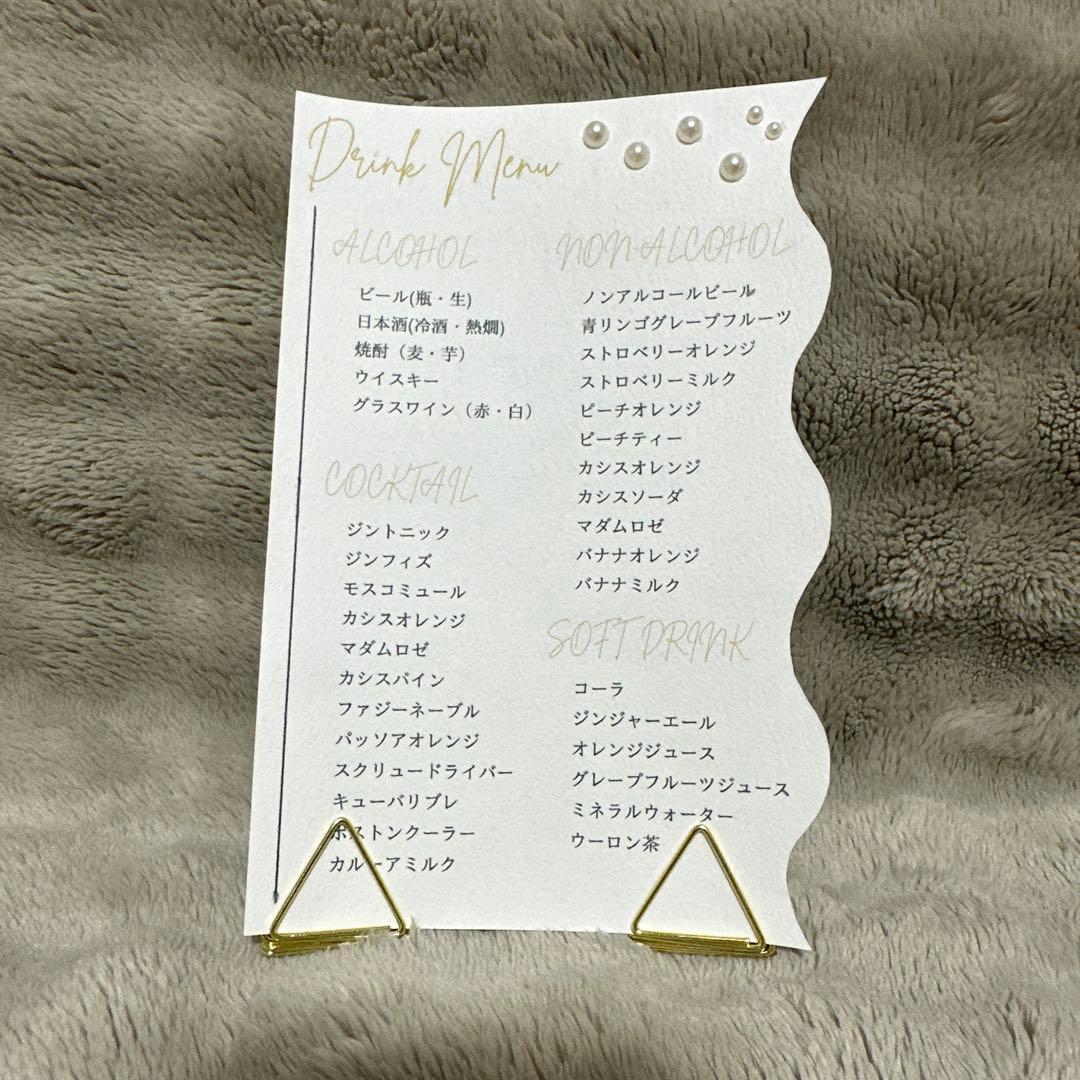 Drink Menu
ALCOHOL
ビール(瓶・生)
日本酒(冷酒・熱燗)
焼酎（麦・芋）
ウイスキー
グラスワイン（赤・白）
COCKTAIL
ジントニック
ジンフィズ
モスコミュール
カシスオレンジ
マダムロゼ
カシスパイン
ファジーネーブル
パッソアオレンジ
スクリュードライバー
キューバリブレ
ボストンクーラー
カルーアミルク
NON-ALCOHOL
ノンアルコールビール
青リンゴグレープフルーツ
ストロベリーオレンジ
ストロベリーミルク
ピーチオレンジ
ピーチティー
カシスオレンジ
カシスソーダ
マダムロゼ
バナナオレンジ
バナナミルク
SOFT DRINK
コーラ
ジンジャーエール
オレンジジュース
グレープフルーツジュース
ミネラルウォーター
ウーロン茶